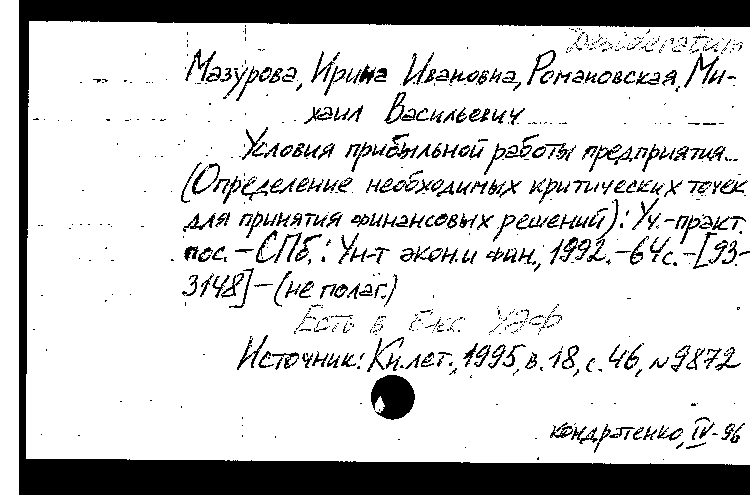 Desideratum
Мазурова, Ирина Ивановна, Романовская, Ми-
хаил Васильевич
Условия прибыльной работы предприятия...
(Определение необходимых критических точек
для принятия финансовых решений): Уч.-практ.
пос. - СПб.: Ун-т экон.и фин., 1992. - 64 с. - [93-
3148] - (не полаг.)
Есть в б-ке УЭФ
Источник: Кн.лет., 1995, в.18, с.46, №9872
Кондратенко, IV-96